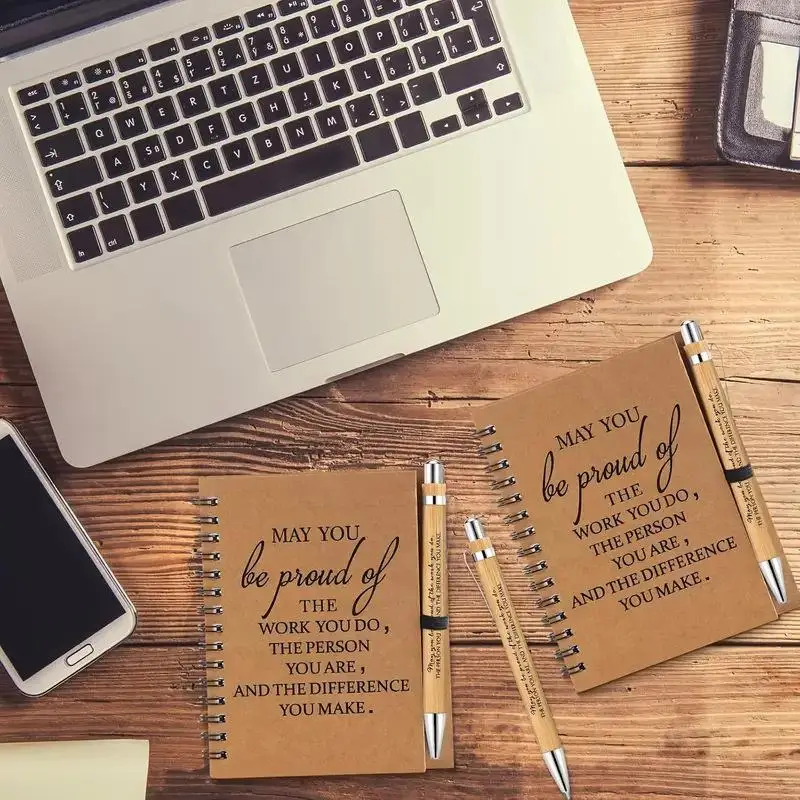 MAY YOU
be proud of
THE
WORK YOU DO,
THE PERSON
YOU ARE,
AND THE DIFFERENCE
YOU MAKE.
MAY YOU
be proud of
THE
WORK YOU DO,
THE PERSON
YOU ARE,
AND THE DIFFERENCE
YOU MAKE.
May you be proud of the work you do,
THE PERSON YOU ARE, AND THE DIFFERENCE YOU MAKE.
esc
Q W E R T Z U I O P
A S D F G H J K L
Y X C V B N M
fn
ctrl